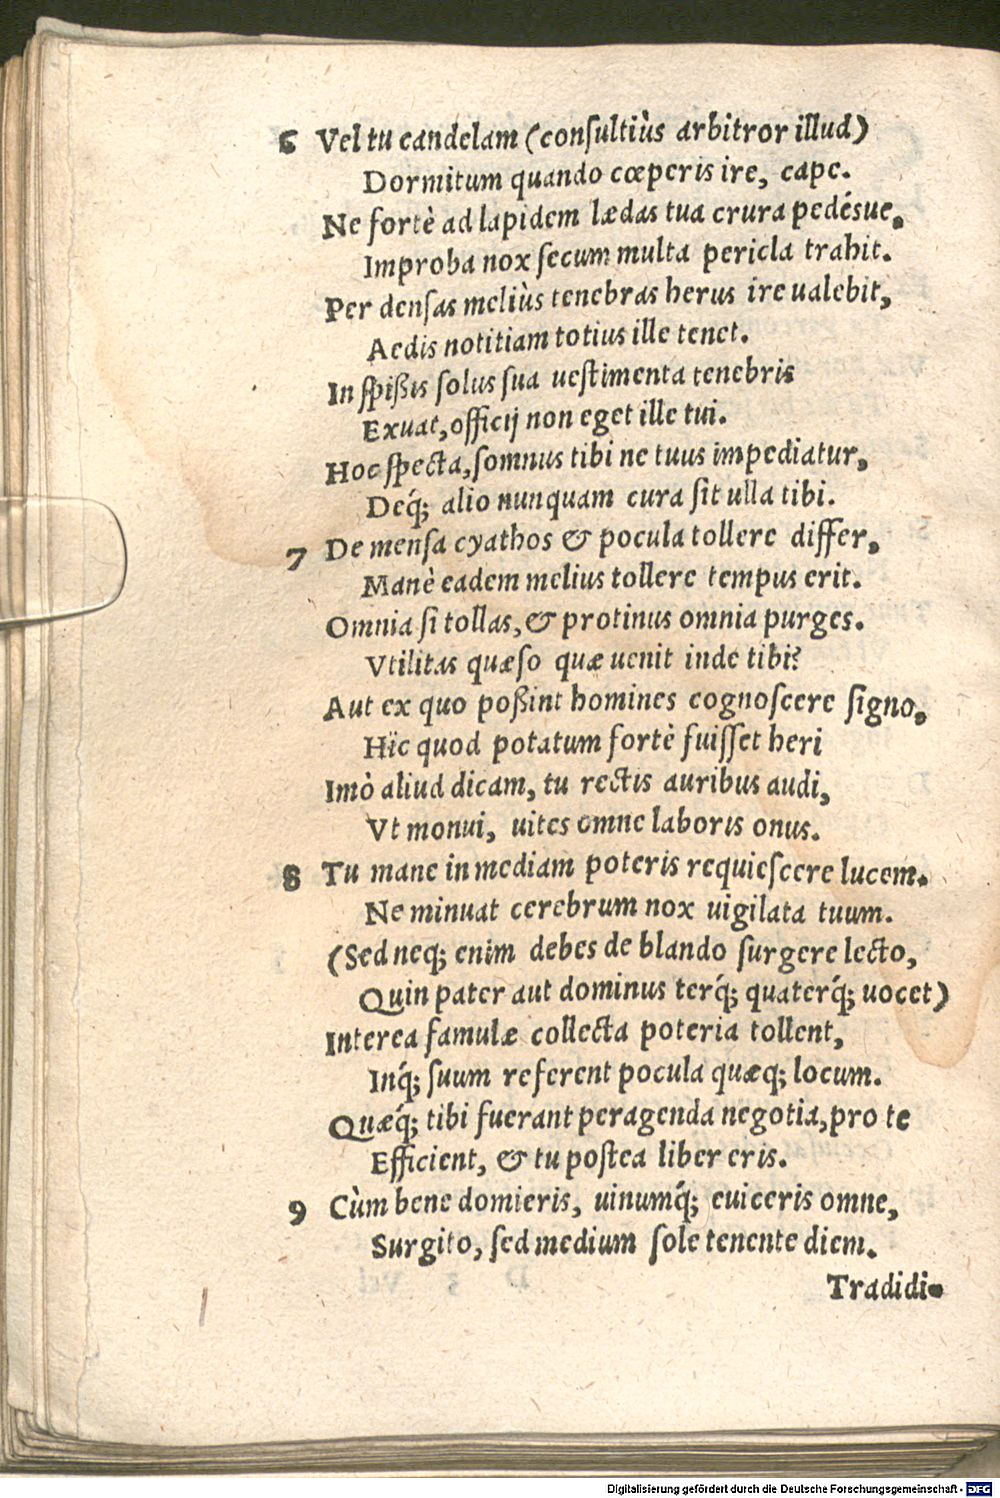 6 Vel tu candelam (conſultiùs arbitror illud)
Dormitum quando cœperis ire, cape.
Ne fortè ad lapidem lædas tua crura pedésue,
Improba nox ſecum multa pericla trahit.
Per denſas meliùs tenebras herus ire ualebit,
Aedis notitiam totius ille tenet.
In ſpißis ſolus ſua ueſtimenta tenebris
Exuat, officij non eget ille tui.
Hoc ſpecta, ſomnus tibi ne tuus impediatur,
Deq́; alio nunquam cura ſit ulla tibi.
7 De menſa cyathos & pocula tollere differ,
Manè eadem melius tollere tempus erit.
Omnia ſi tollas, & protinus omnia purges.
Vtilitas quæſo quæ uenit inde tibi?
Aut ex quo poßint homines cognoſcere ſigno,
Hîc quod potatum fortè fuiſſet heri
Imò aliud dicam, tu rectis auribus audi,
Vt monui, uites omne laboris onus.
8 Tu mane in mediam poteris requieſcere lucem.
Ne minuat cerebrum nox uigilata tuum.
(Sed neq; enim debes de blando ſurgere lecto,
Quin pater aut dominus terq́; quaterq́; uocet)
Interea famulæ collecta poteria tollent,
Inq́; ſuum referent pocula quæq; locum.
Quæq́; tibi fuerant peragenda negotia, pro te
Efficient, & tu poſtea liber eris.
9 Cùm bene domieris, uinumq́; euiceris omne,
Surgito, ſed medium ſole tenente diem.
Tradidi-
Digitalisierung gefördert durch die Deutsche Forschungsgemeinschaft - DFG